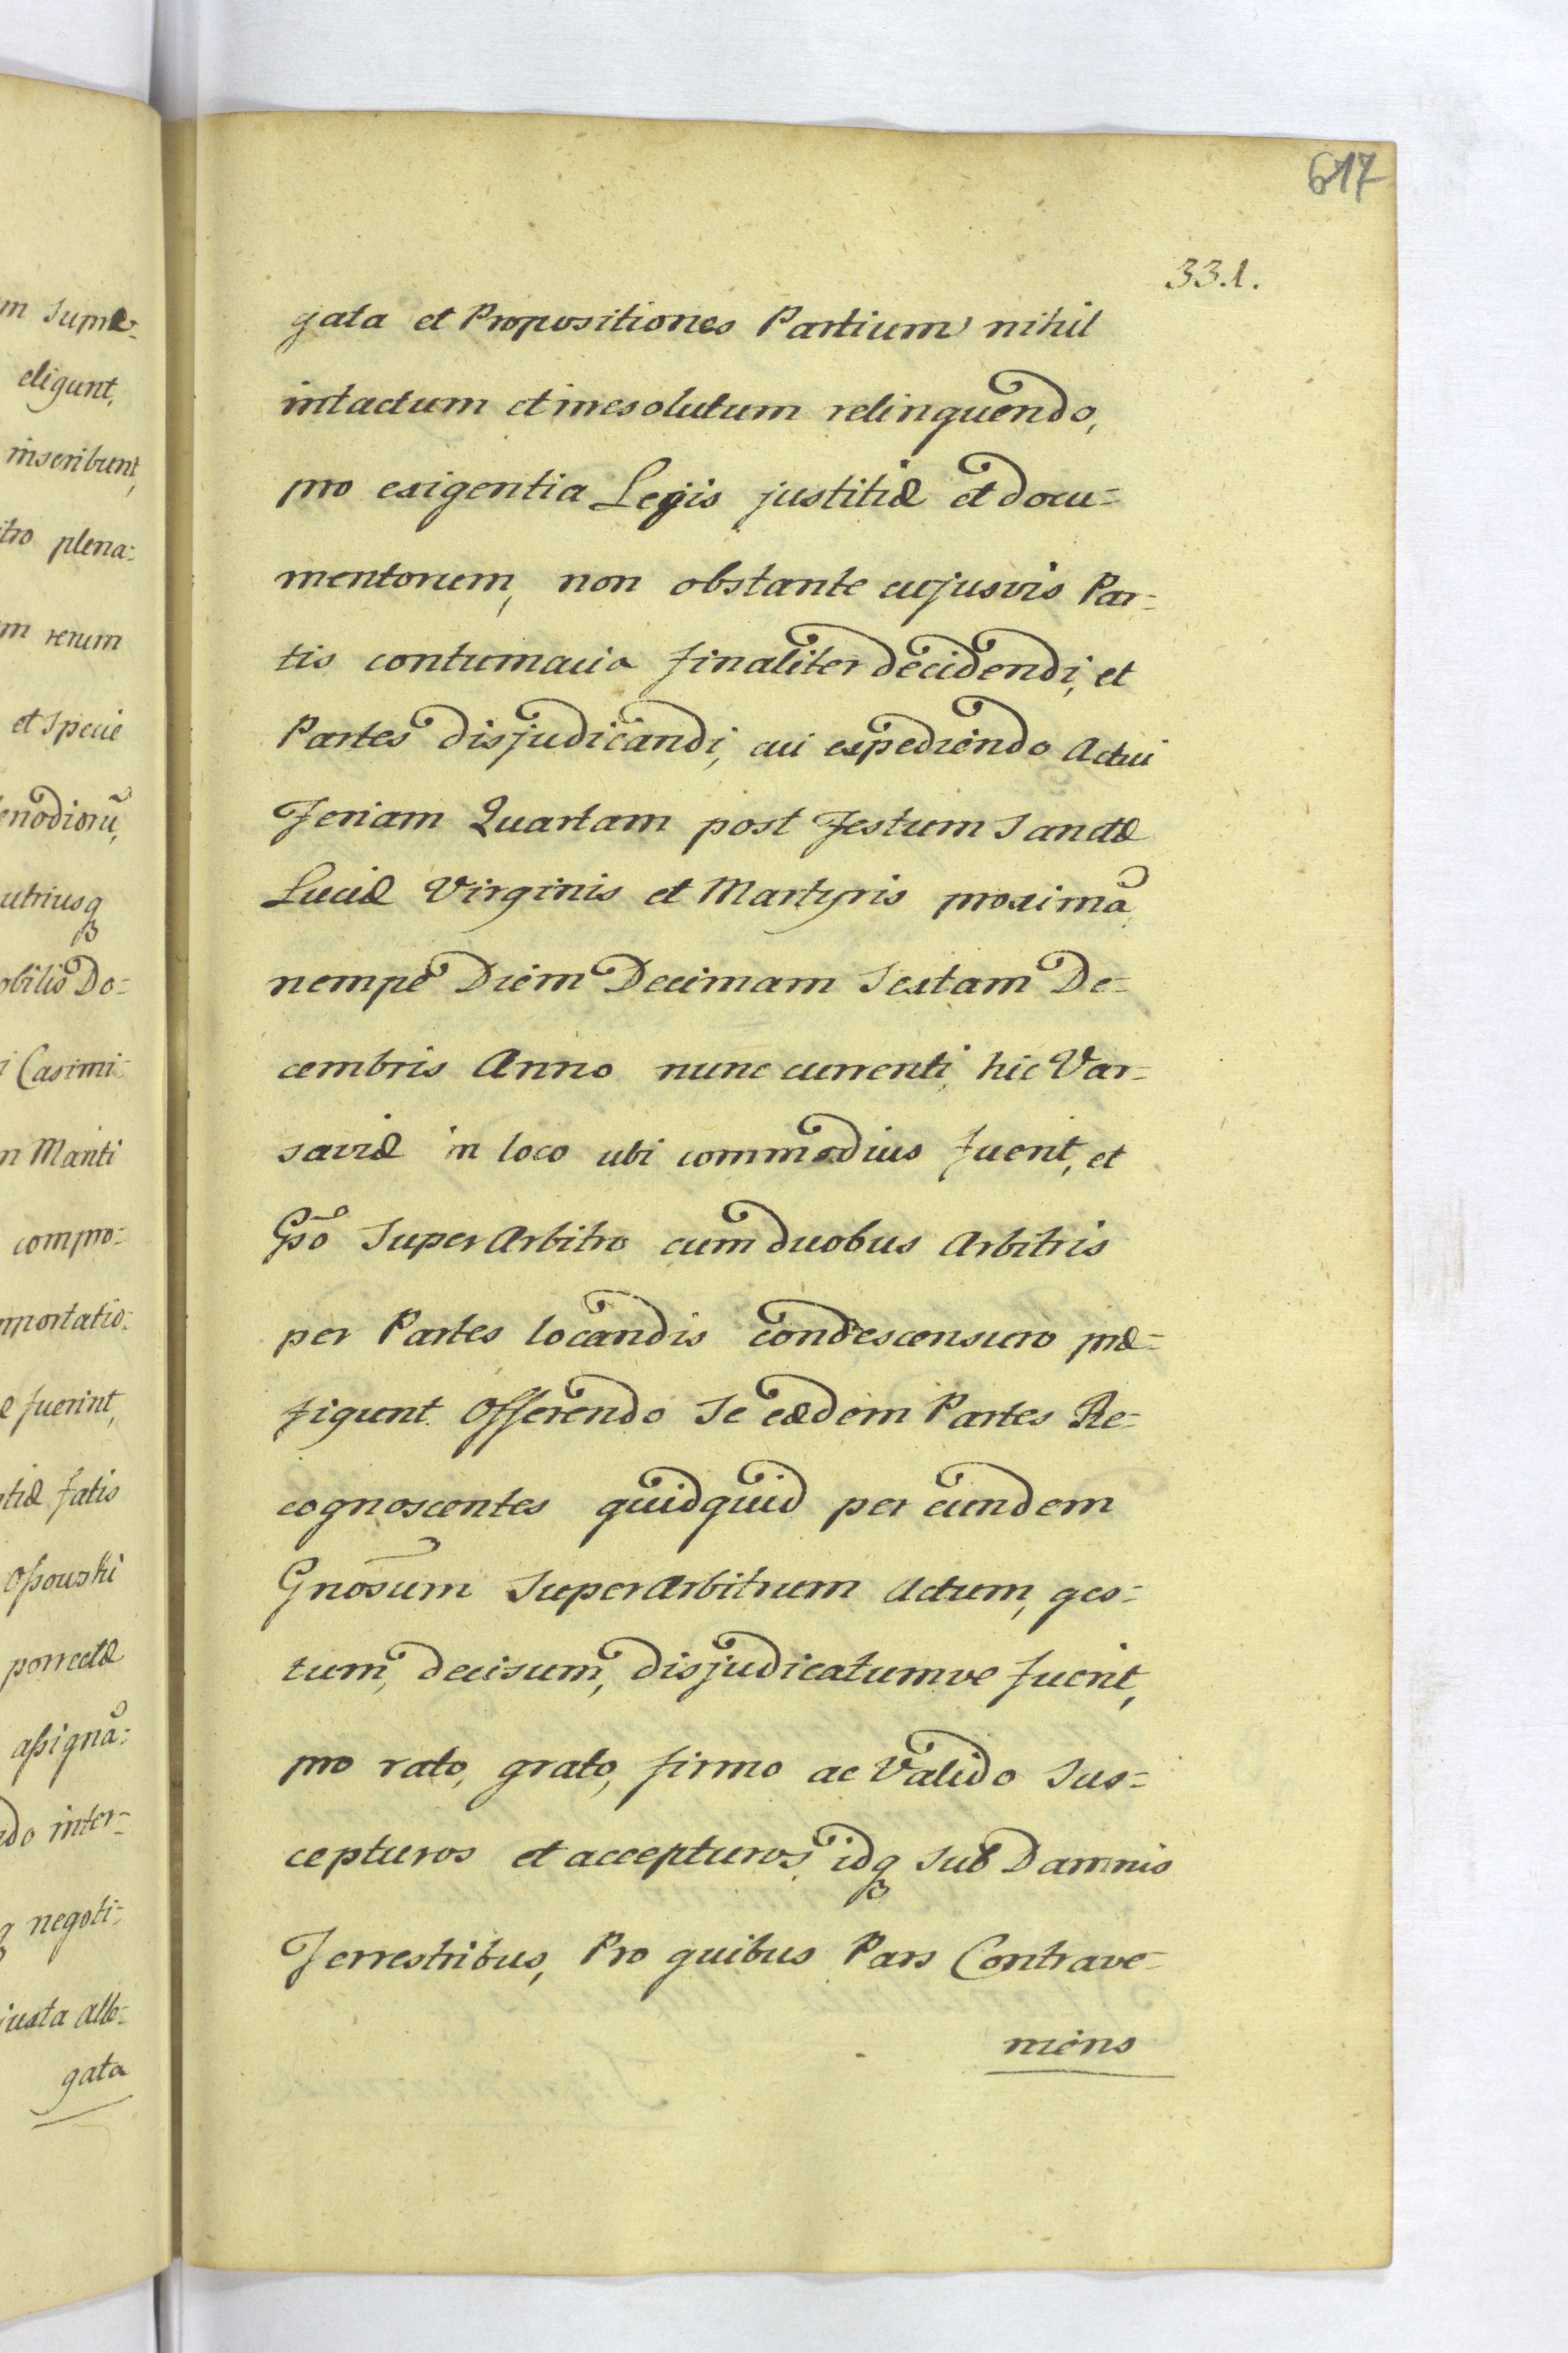 617
33.1.
m Supræ-
eligunt,
inseribunt,
itro plena-
m rerum
et Specie
enodiorũ,
utriusq
obilis Do-
i Casimi-
n Manti
compo-
mportatio-
æ fuerint,
tiæ fatis
Oßowski
porrectæ
aßignã-
do inter-
q negoti-
iuxta alle-
gata
gata et Propositiones Partium nihil
intactum et irresolutum relinquendo,
pro exigentia Legis justitiæ et docu-
mentorum, non obstante cujusvis Par-
tis contumacia finaliter decidendi, et
Partes disjudicandi, cui expediendo Actui
Feriam Quartam post Festum Sanctæ
Luciæ Virginis et Martyris proximã,
nempe Diem Decimam Sextam De-
cembris Anno nunc currenti hic Var-
saviæ in loco ubi commodius fuerit, et
Gsõ SuperArbitro cum duobus Arbitris
per Partes locandis condescensuro præ-
figunt. Offerendo Se eædem Partes Re-
cognoscentes quidquid per eundem
Gnosum SuperArbitrum Actum, ges-
tum, decisum, disjudicatumve fuerit,
pro rato, grato, firmo ac Valido Sus-
cepturos et accepturos, idq sub Damnis
Terrestribus, Pro quibus Pars Contrave-
niens